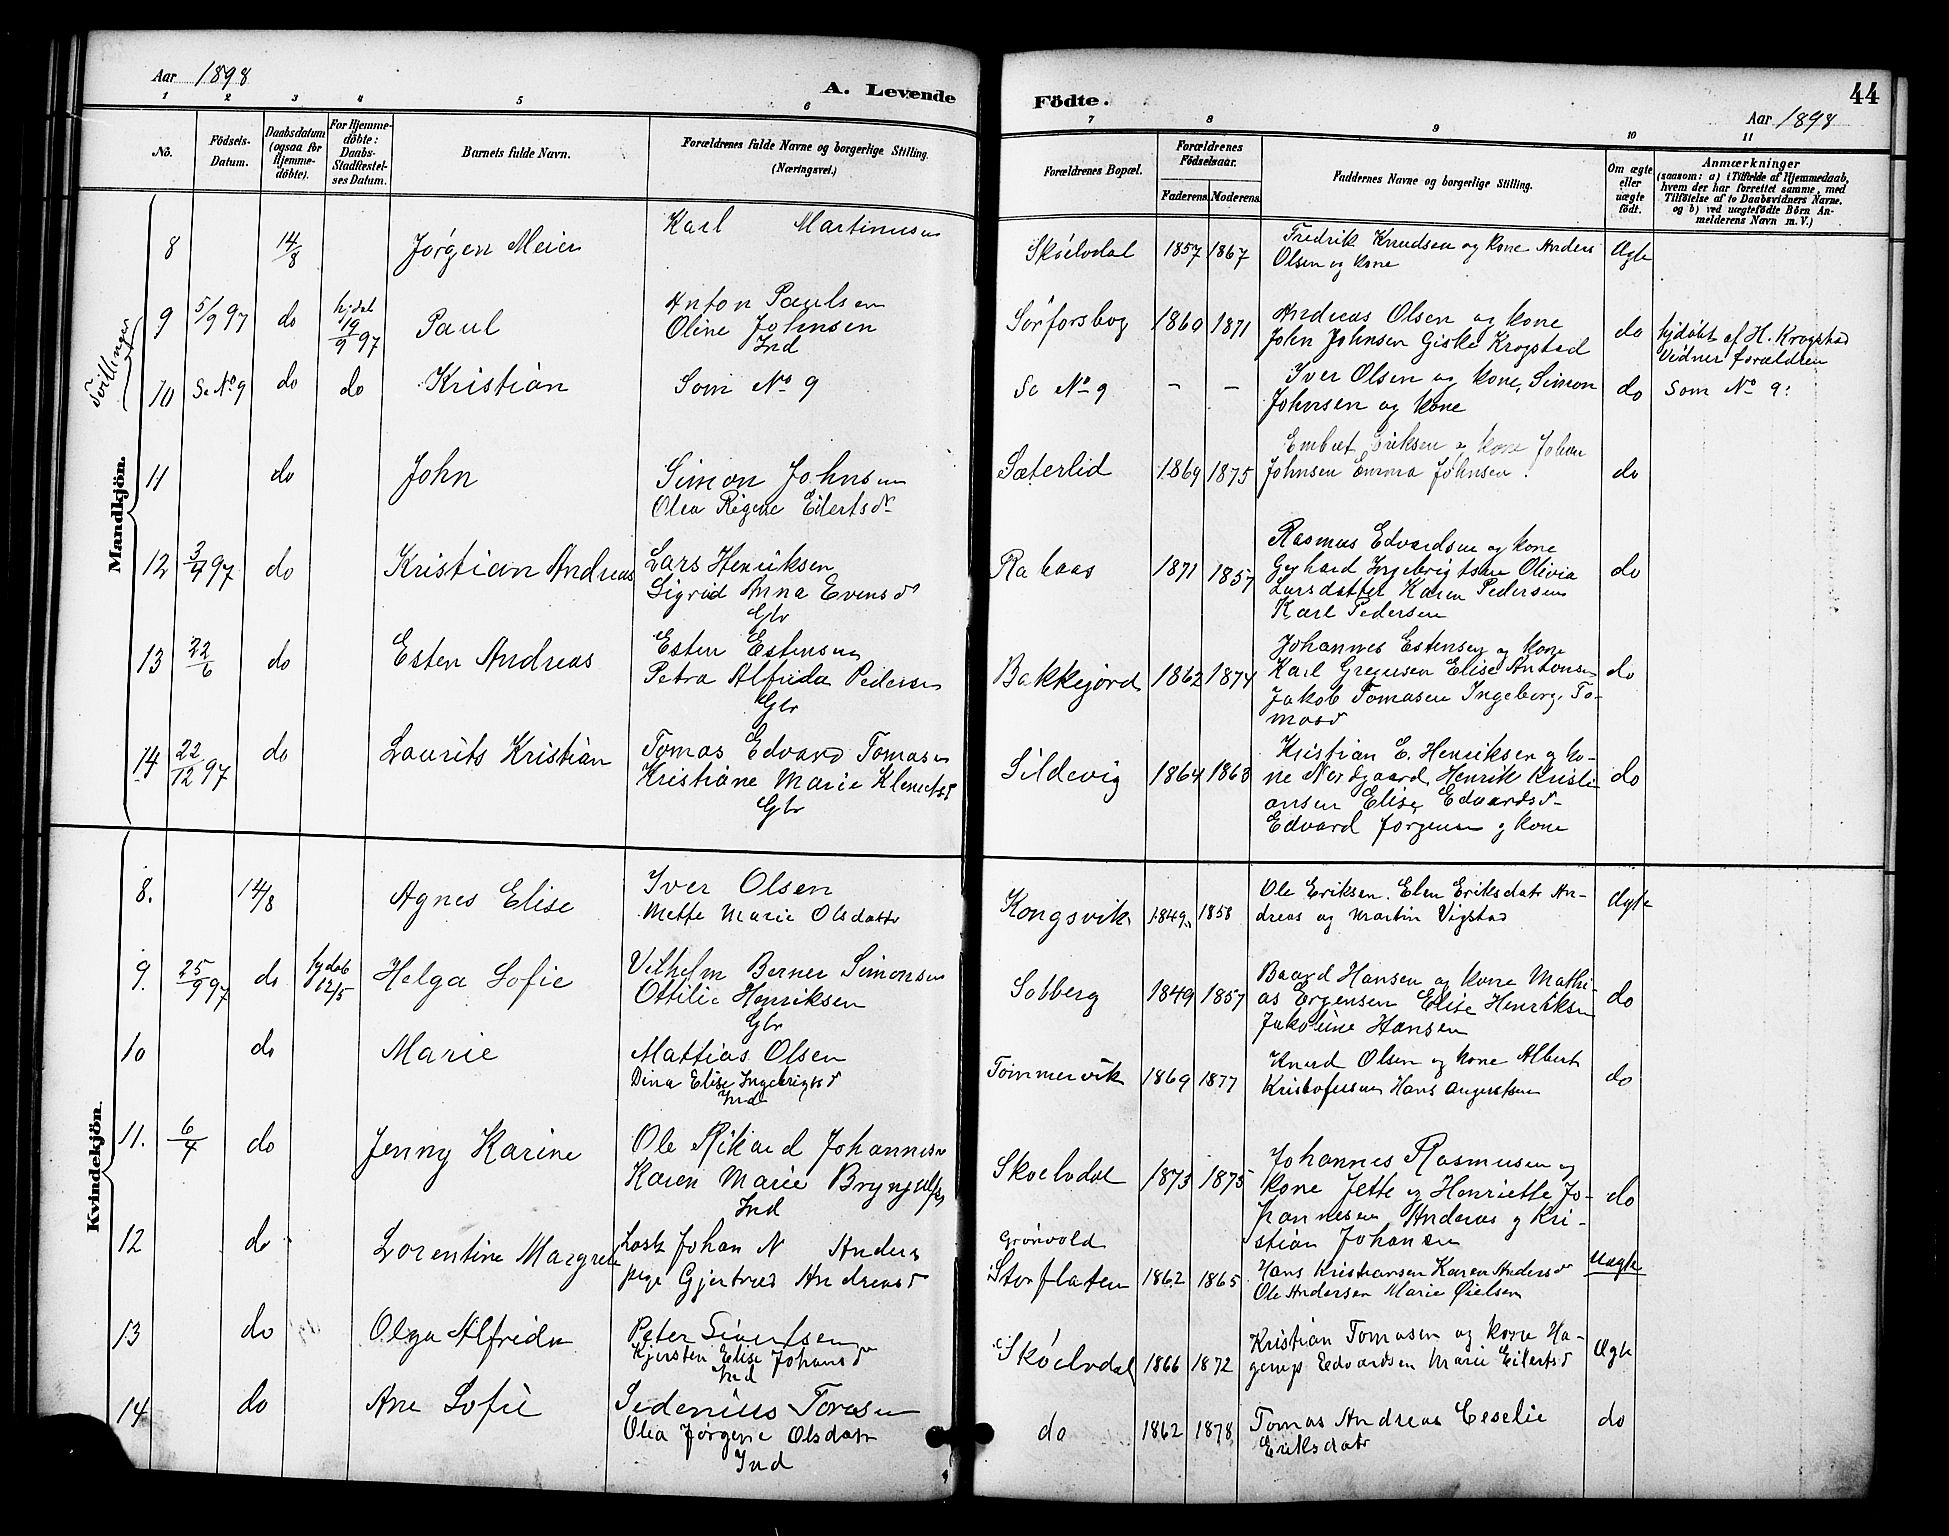 Aar 1898
A. Levende Födte.
44
Aar 1898
1 2 3 4 5 6 7 8 9 10 11
No.
Födsels-Datum.
Daabsdatum (ogsaa for Hjemme-döbte).
For Hjemme-döbte: Daabs-Stadfæstel-ses Datum.
Barnets fulde Navn.
Forældrenes fulde Navne og borgerlige Stilling.
(Næringsvei.)
Forældrenes Bopæl.
Forældrenes Födselsaar.
Faderens. Moderens.
Faddernes Navne og borgerlige Stilling.
Om ægte eller uægte födt.
Anmærkninger
(saasom: a) i Tilfælde af Hjemmedaab,
hvem der har forrettet samme, med
Tilföielse af to Daabsvidners Navne.
og b) ved uægtefödte Börn An-
melderens Navn m. V.)
Mandkjön.
Tvillinger
8 14/8 Jørgen Meier Karl Martinusen
Skøelvdal 1857 1867 Fredrik Knudsen og kone Anders
Olsen og kone Ægte
9 5/9 97 do hjdøbt 19/9 97 Paul Anton Paulsen
Oline Johnsen
Ind
Sørforsbog 1860 1871 Andreas Olsen og kone
John Johnsen Giske Krogstad do hjdøbt af H. Krogstad
Vidner forældren
10 Se No 9 do do Kristian Som No 9
Se No 9 - - Iver Olsen og kone, Simon
Johnsen og kone do Som No 9.
11 do John Simon Johnsen
Olea Regine Eilertsd
Sæterlid 1869 1875 Embret Eriksen og kone Johan
Johnsen Emma Johnsen. do
12 3/4 97 do Kristian Andreas Lars Henriksen
Sigrid Anna Evensd
Gbr
Rabaas 1871 1857 Rasmus Edvardsen og kone
Gerhard Ingebrigtsen Olivia
Larsdatter Karen Pedersen
Karl Pedersen do
13 22/6 do Esten Andreas Esten Estensen
Petra Alfrida Pedersen
Gbr
Bakkejord 1862 1874 Johannes Estensen og kone
Karl Gregersen Elise Antonsen
Jakob Tomasen Ingeborg To-
masd do
14 22/12 97 do Laurits Kristian Tomas Edvard Tomasen
Kristiane Marie Klemetsd
Gbr
Sildevig 1864 1863 Kristian E. Henriksen og ko-
ne Nordgaard, Henrik Kristi
ansen Elise Edvardsd
Edvard Jørgensen og kone do
Kvindekjön.
8. 14/8 Agnes Elise Iver Olsen
Mette Marie Olsdatter
Kongsvik 1849 1858 Ole Eriksen. Elen Eriksdatr An-
dreas og Martin Vigstad Ægte
9. 25/9 97 do hjdøb 12/5 Helga Sofie Vilhelm Berner Simonsen
Ottilie Henriksen
Gbr
Solberg 1849 1857 Baard Hansen og kone Mathi-
as Ergensen Elise Henriksen
Jakobine Hansen do
10 do Marie Mattias Olsen
Dina Elise Ingebrigtsd
Ind
Tømmervik 1869 1877 Knud Olsen og kone Albert
Kristofersen Hans Angeltsen do
11. 6/4 do Jenny Karine Ole Rikard Johannesen
Karen Marie Brynjulfs
Ind
Skøelvdal 1873 1875 Johannes Rasmusen og
kone Jette og Henriette Jo-
hannesen Andreas og Kri-
stian Johansen do
12 do Lorentine Margrete Losk Johan N Anders
pige Gjertrud Andreasd
Grønvold
Storflaten 1862 1865 Hans Kristiansen Karen Andersd
Ole Andersen Marie Øielsen Uægte
13 do Olga Alfrida Peter Sivertsen
Kjersten Elise Johansd
Ind
Skøelvdal 1866 1872 Kristian Tomasen og kone Ha-
gerup Edvardsen Marie Eilertsd Ægte
14 do Ane Sofie Sedenius Toresen
Olea Jørgine Olsdatr
Ind
do 1862 1878 Tomas Andreas Ceselie
Eriksdatr do